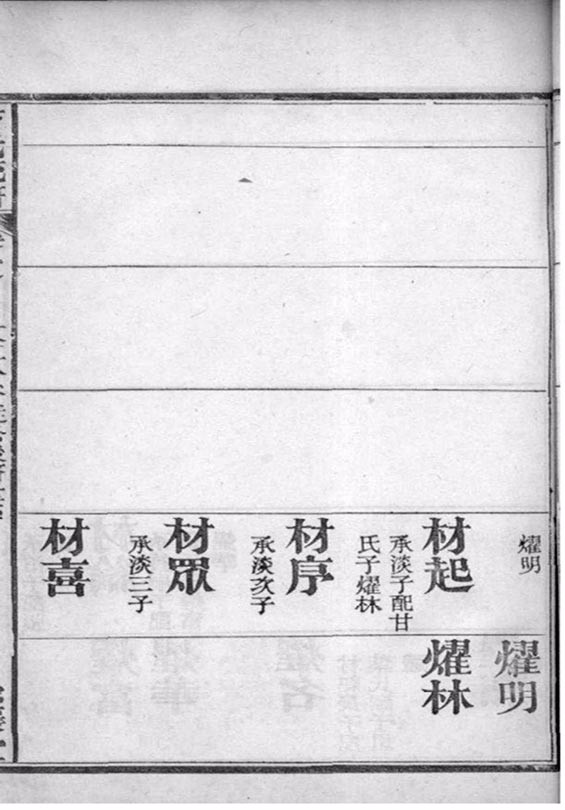 燿明
材起
承淡子配甘
氏子燿林
材序
承淡次子
材眾
承淡三子
材喜
燿明
燿林